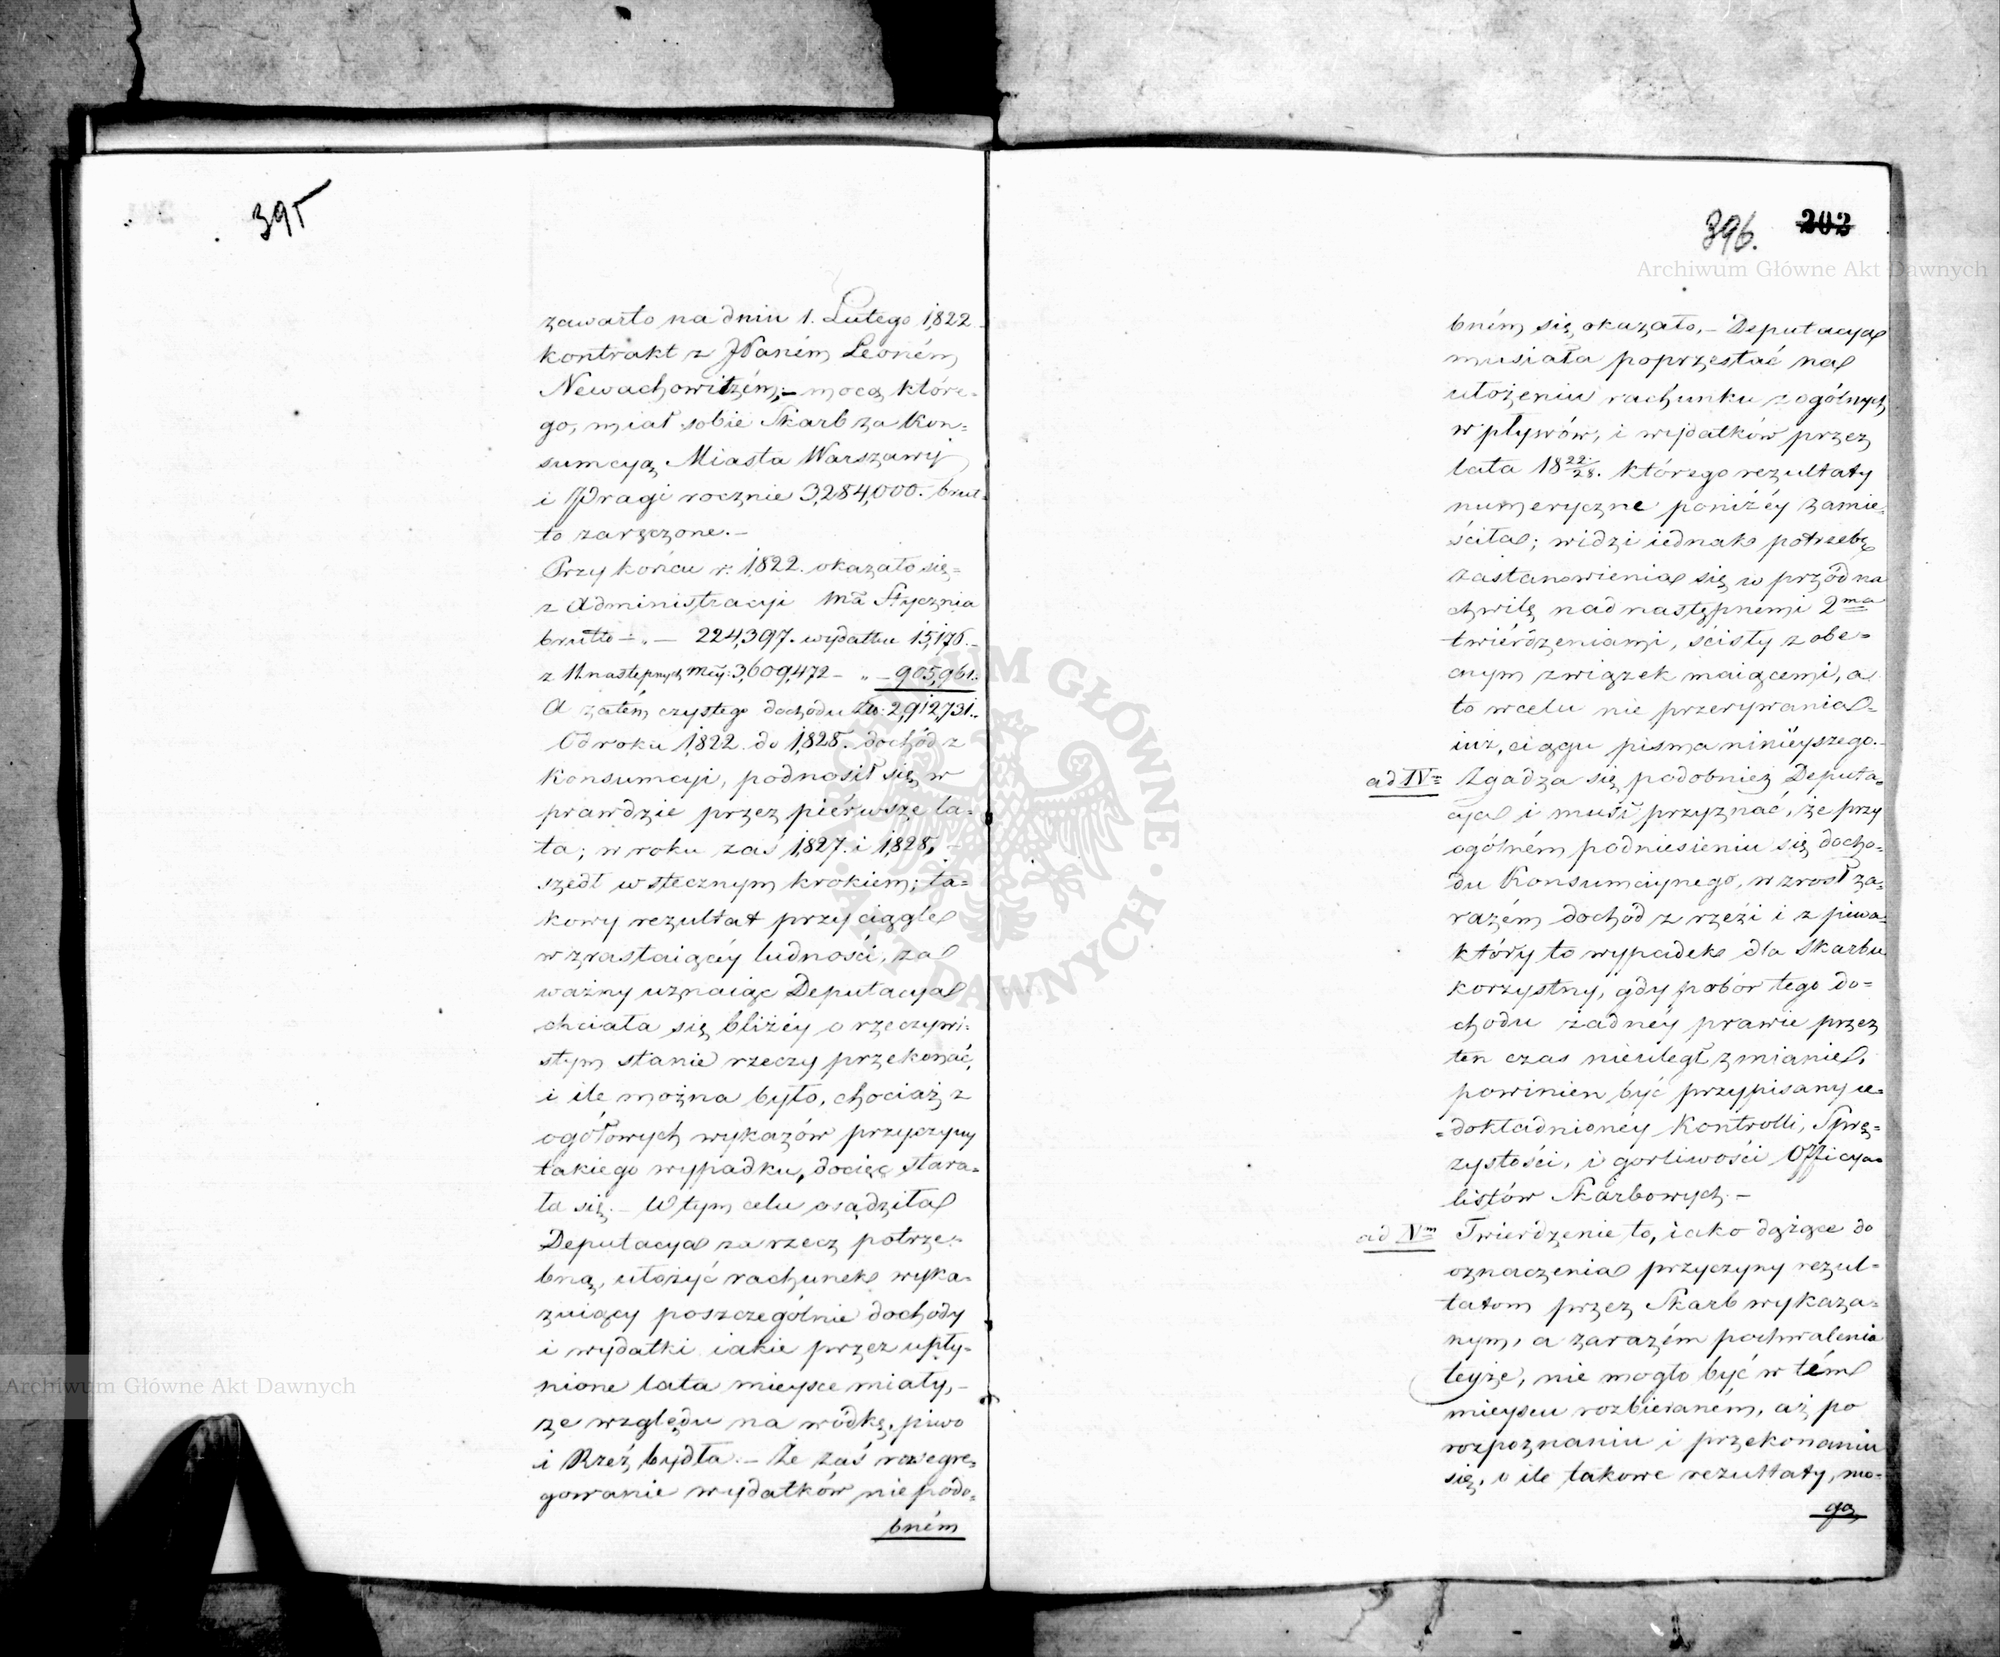 395
zawarto na dniu 1. Lutego 1822
kontrakt z JPaném Leoném
Newachowiczém; – mocą które-
go, miał sobie Skarb za Kon-
sumcyą Miasta Warszawy
i Pragi rocznie 3,284,000. brut-
to zaręczone. –
Przy końcu r: 1822. okazało się
z Administracyi Mca Stycznia
brutto – „ – 224,397. wydatku 15,176. –
z 11 następnych mcy: 3,609,472 – „ – 905,961.
A zatém czystego dochódu Złp: 2,912,731.
Od roku 1822. do 1828. dochód z
Konsumcyi, podnosił się w
prawdzie przez piérwsze la-
ta; w roku zaś 1827. i 1828, –
szedł wstecznym krokiem; ta-
kowy rezultat przy ciągle
wzrastaiącéy ludności, za
ważny uznaiąc Deputacya
chciała się bliżéy o rzeczywi-
stym stanie rzeczy przekonać,
i ile można było, chociaż z
ogółowych wykazów przyczyny
takiego wypadku, dociec stara-
ła się. – W tym celu osądziła
Deputacya za rzecz potrze-
bną, ułożyć rachunek wyka-
zuiący poszczególnie dochody
i wydatki iakie przez upły-
nione lata mieysce miały, –
ze względu na wódkę, piwo
i Rzeź bydła. – Że zaś rozsegre-
gowanie wydatków niepodo-
bném
396. 202
bném się okazało, – Deputacya
musiała poprzestać na
ułożeniu rachunku z ogólnych
wpływów, i wydatków przez
lata 1822/28. którego rezultaty
numeryczne poniżéy zamie-
ściła; widzi iednak potrzebę
zastanowienia się w przód na
chwilę nad następnemi 2ma
twiérdzeniami, ścisły z obe-
cnym związek maiącemi, a
to w celu nie przerywania
iuż, ciągu pisma ninieyszego. –
ad IV= Zgadza się podobnież Deputa-
cya i musi przyznać, że przy
ogólném podniesieniu się docho-
du Konsumcyinego, wzrosł za-
razém dochód z rzezi i z piwa
który to wypadek dla Skarbu
korzystny, gdy pobór tego do-
chodu żadnéy prawie przez
ten czas nieuległ zmianie,
powinien być przypisany u-
dokładnionéy Kontrolli, Sprę-
żystości, i gorliwości Officya-
listów Skarbowych. –
ad Vm Twierdzenie to, iako dążące do
oznaczenia przyczyny rezul-
tatom przez Skarb wykaza-
nym, a zarazém pochwalenia
teyże, nie mogło być w tém
mieyscu rozbieranem, aż po
rozpoznaniu i przekonaniu
się, o ile takowe rezultaty, mo-
gą
Archiwum Główne Akt Dawnych
Archiwum Główne Akt Dawnych
ARCHIWUM GŁÓWNE AKT DAWNYCH